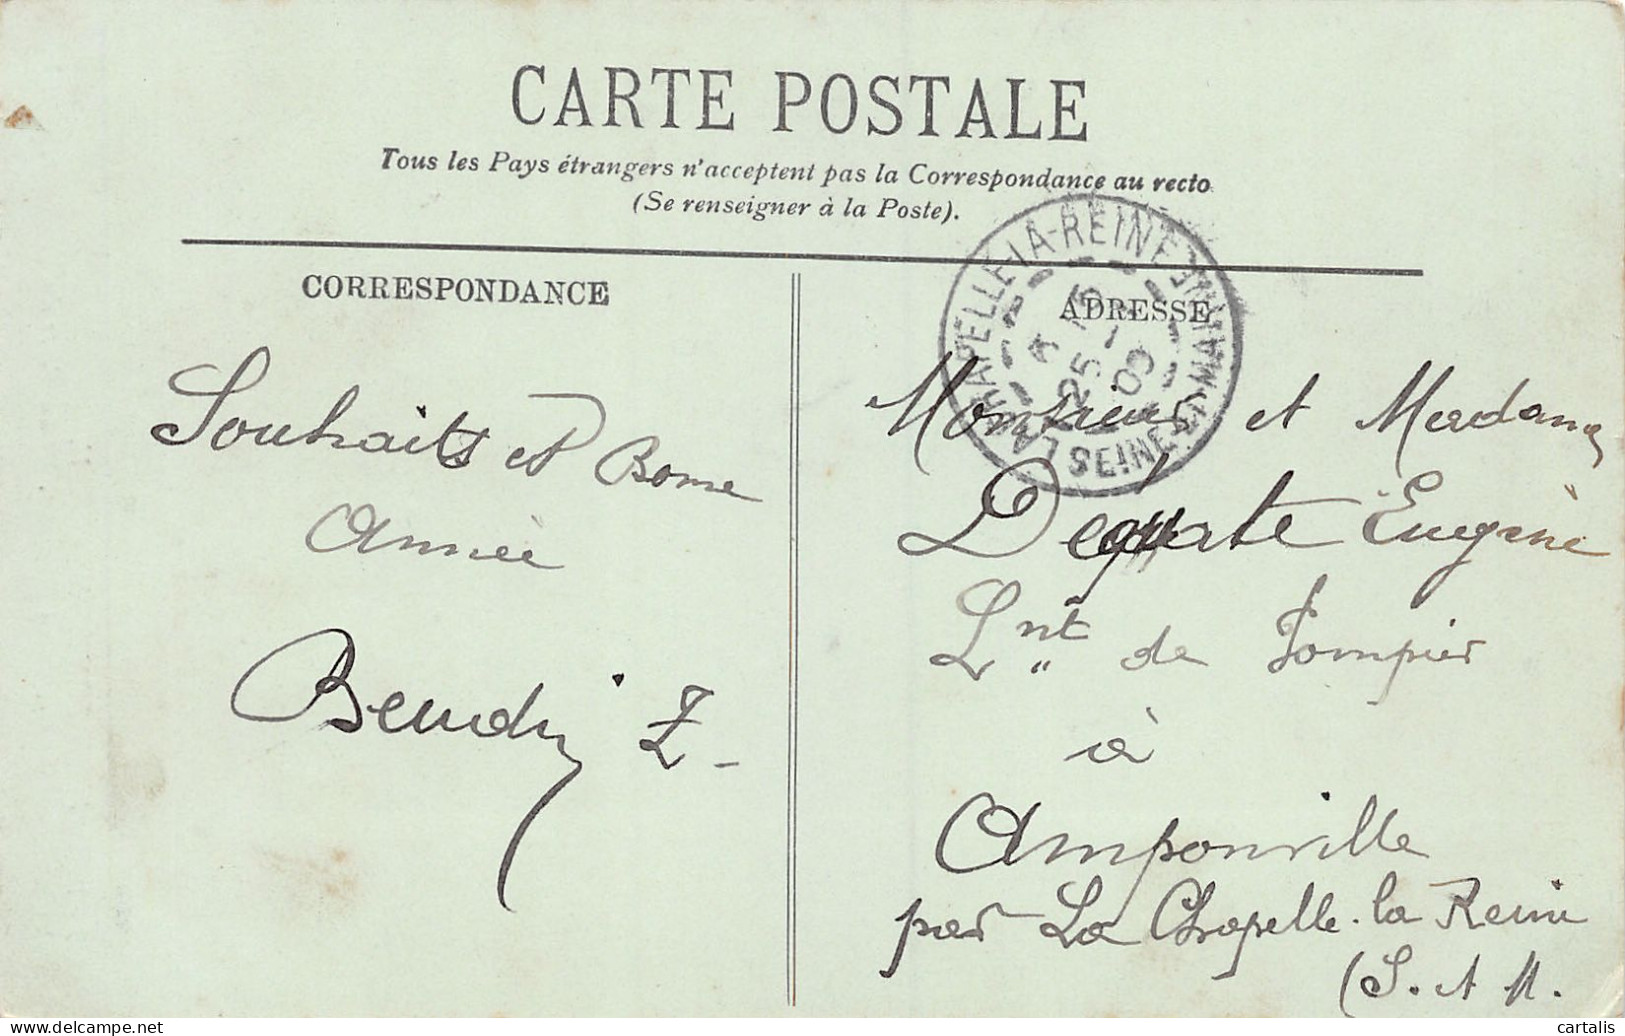 CARTE POSTALE
Tous les Pays étrangers n'acceptent pas la Correspondance au recto
(Se renseigner à la Poste).
CORRESPONDANCE
Souhaits et Bonne
Année
ADRESSE
LA-CHAPELLE-LA-REINE
SEINE-ET-MARNE
25 - 1
09
Monsieur et Madame
Eugène
Lnt de Pompier
à
Amponville
par La Chapelle-la Reine
(S. et M.
delcampe.net
cartalis